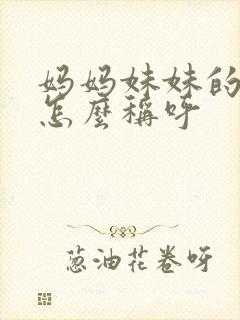 妈妈妹妹的
怎麼稱呼
葱油花卷呀